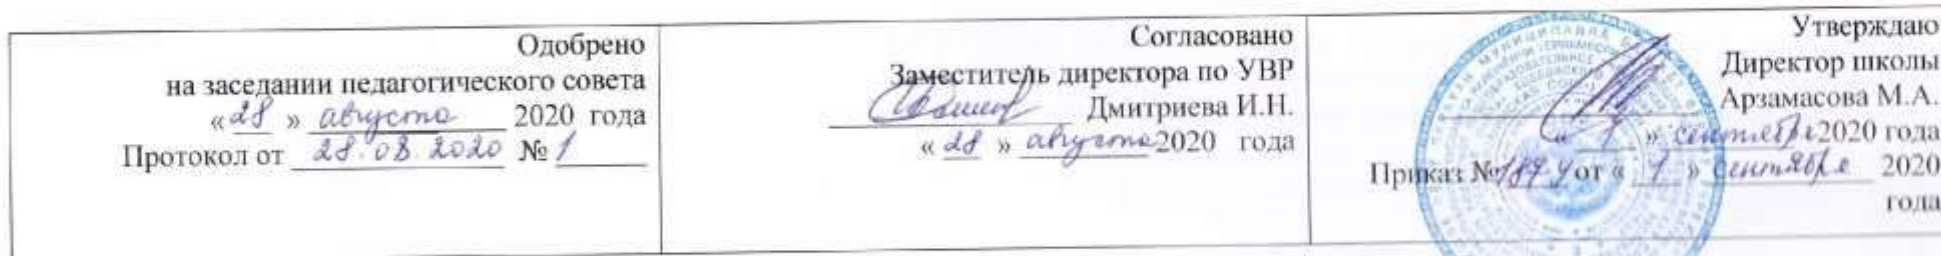 Одобрено
на заседании педагогического совета
« 28 » августа 2020 года
Протокол от 28.08.2020 № 1
Согласовано
Заместитель директора по УВР
Дмитриева И.Н.
« 28 » августа 2020 года
Утверждаю
Директор школы
Арзамасова М.А.
« 1 » сентября 2020 года
Приказ № от « 1 » сентября 2020
года